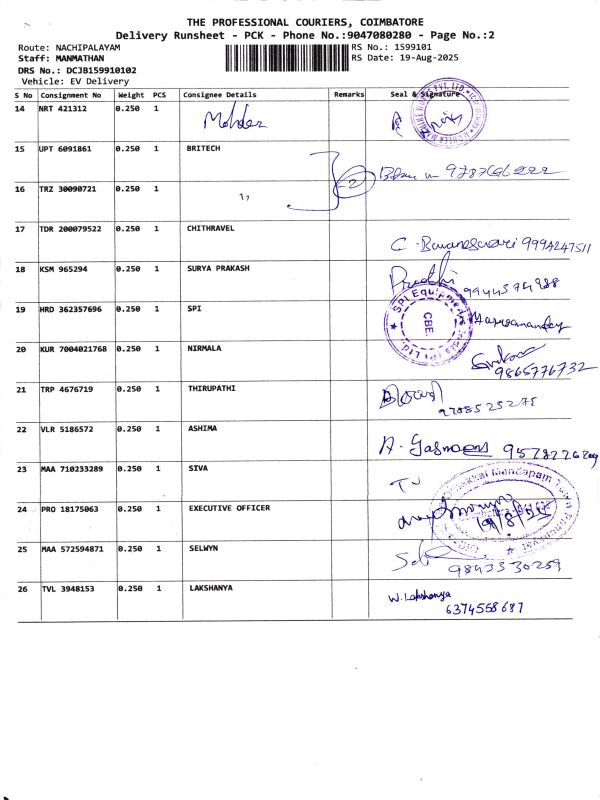 THE PROFESSIONAL COURIERS, COIMBATORE
Delivery Runsheet - PCK - Phone No.:9047080280 - Page No.:2
Route: NACHIPALAYAM
RS No.: 1599101
Staff: MANMATHAN
RS Date: 19-Aug-2025
DRS No.: DCJB159910102
Vehicle: EV Delivery
S No Consignment No Weight PCS Consignee Details Remarks Seal & Signature
14 NRT 421312 0.250 1
15 UPT 6091861 0.250 1 BRITECH
16 TRZ 30090721 0.250 1 "
2
17 TDR 200079522 0.250 1 CHITHRAVEL
18 KSM 965294 0.250 1 SURYA PRAKASH
19 HRD 362357696 0.250 1 SPI
SPI Equipments
CBE.
20 KUR 7004021768 0.250 1 NIRMALA
9865776732
21 TRP 4676719 0.250 1 THIRUPATHI
22 VLR 5186572 0.250 1 ASHIMA
23 MAA 710233289 0.250 1 SIVA
24 PRO 18175063 0.250 1 EXECUTIVE OFFICER
19/8/25
25 MAA 572594871 0.250 1 SELWYN
9843330259
26 TVL 3948153 0.250 1 LAKSHANYA
W. Lakshanya
6374558687